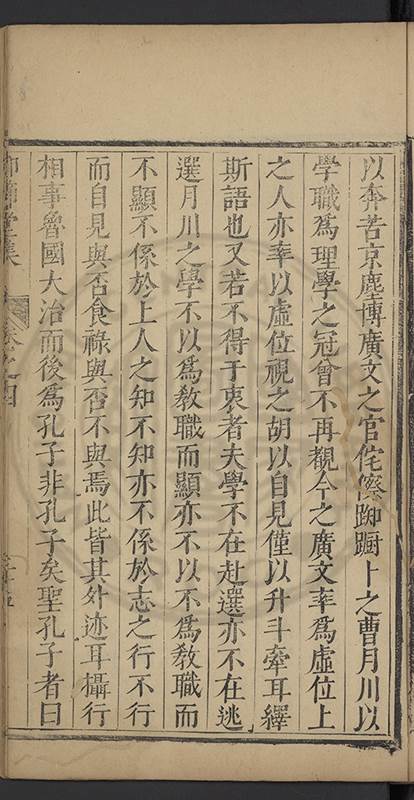 以奔苦京塵博廣文之官侘傺踟蹰卜之曹月川以
學職為理學之冠會不再覩今之廣文率為虛位上
之人亦率以虛位視之胡以自見僅以升斗牽耳繹
斯語也又若不得于衷者夫學不在赴選亦不在逃
選月川之學不以為教職而顯亦不以不為教職而
不顯不係於上人之知不知亦不係於志之行不行
而自見與否食祿與否不與焉此皆其外迹耳攝行
相事魯國大治而後為孔子非孔子矣聖孔子者曰
堂集 卷之四